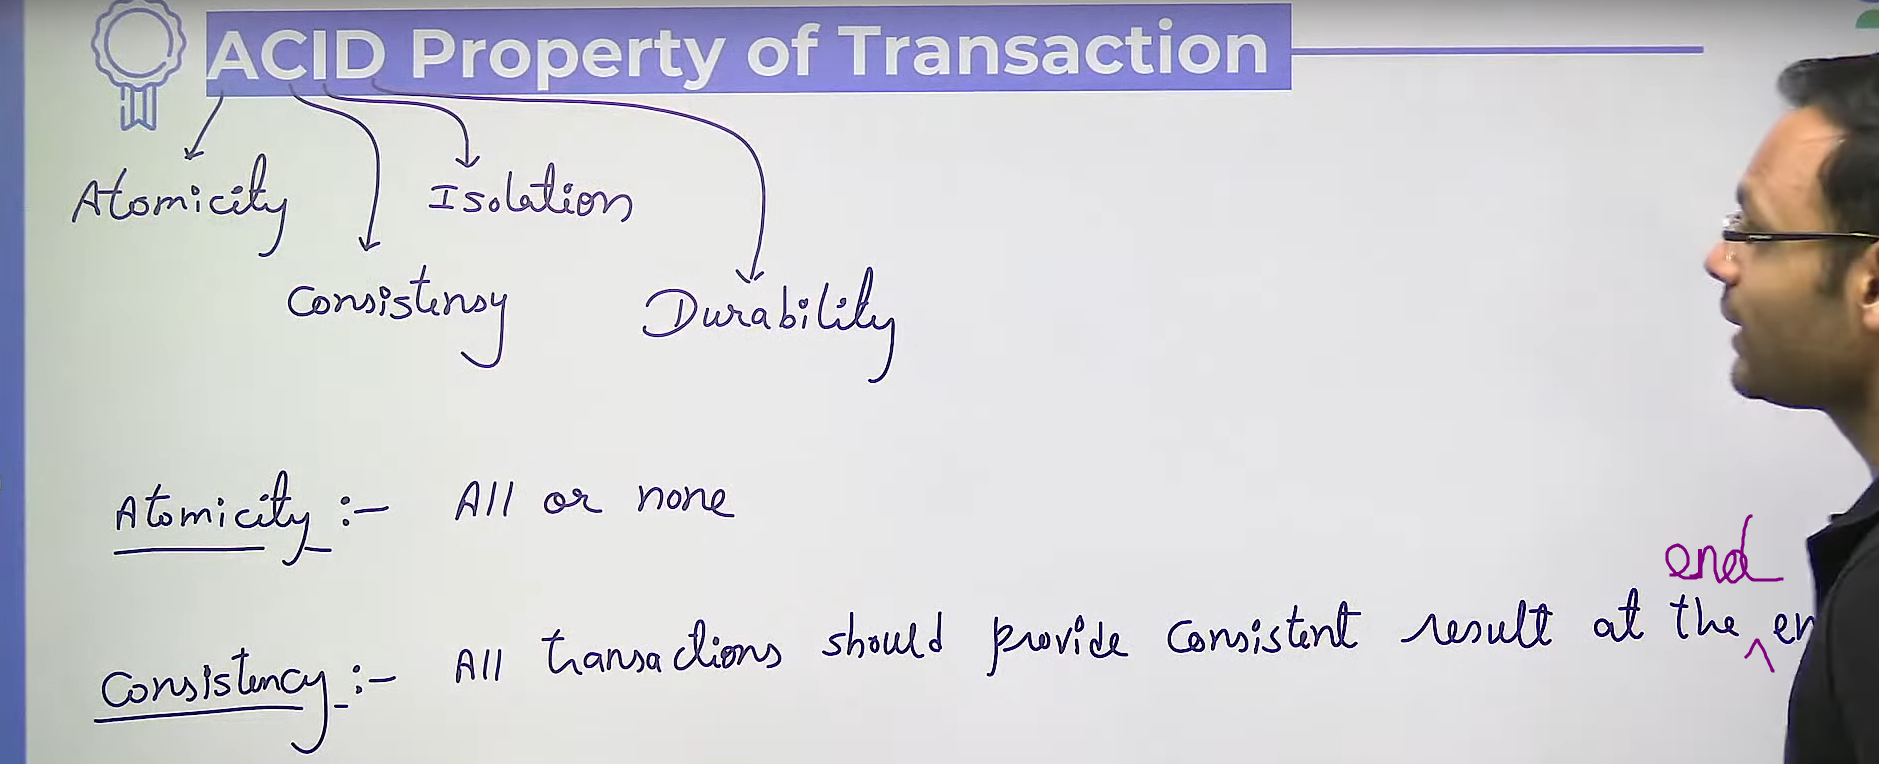 ACID Property of Transaction
Atomicity
Isolation
Consistensy
Durability
Atomicity :- All or none
end
Consistency :- All transactions should provide consistent result at the ^ en